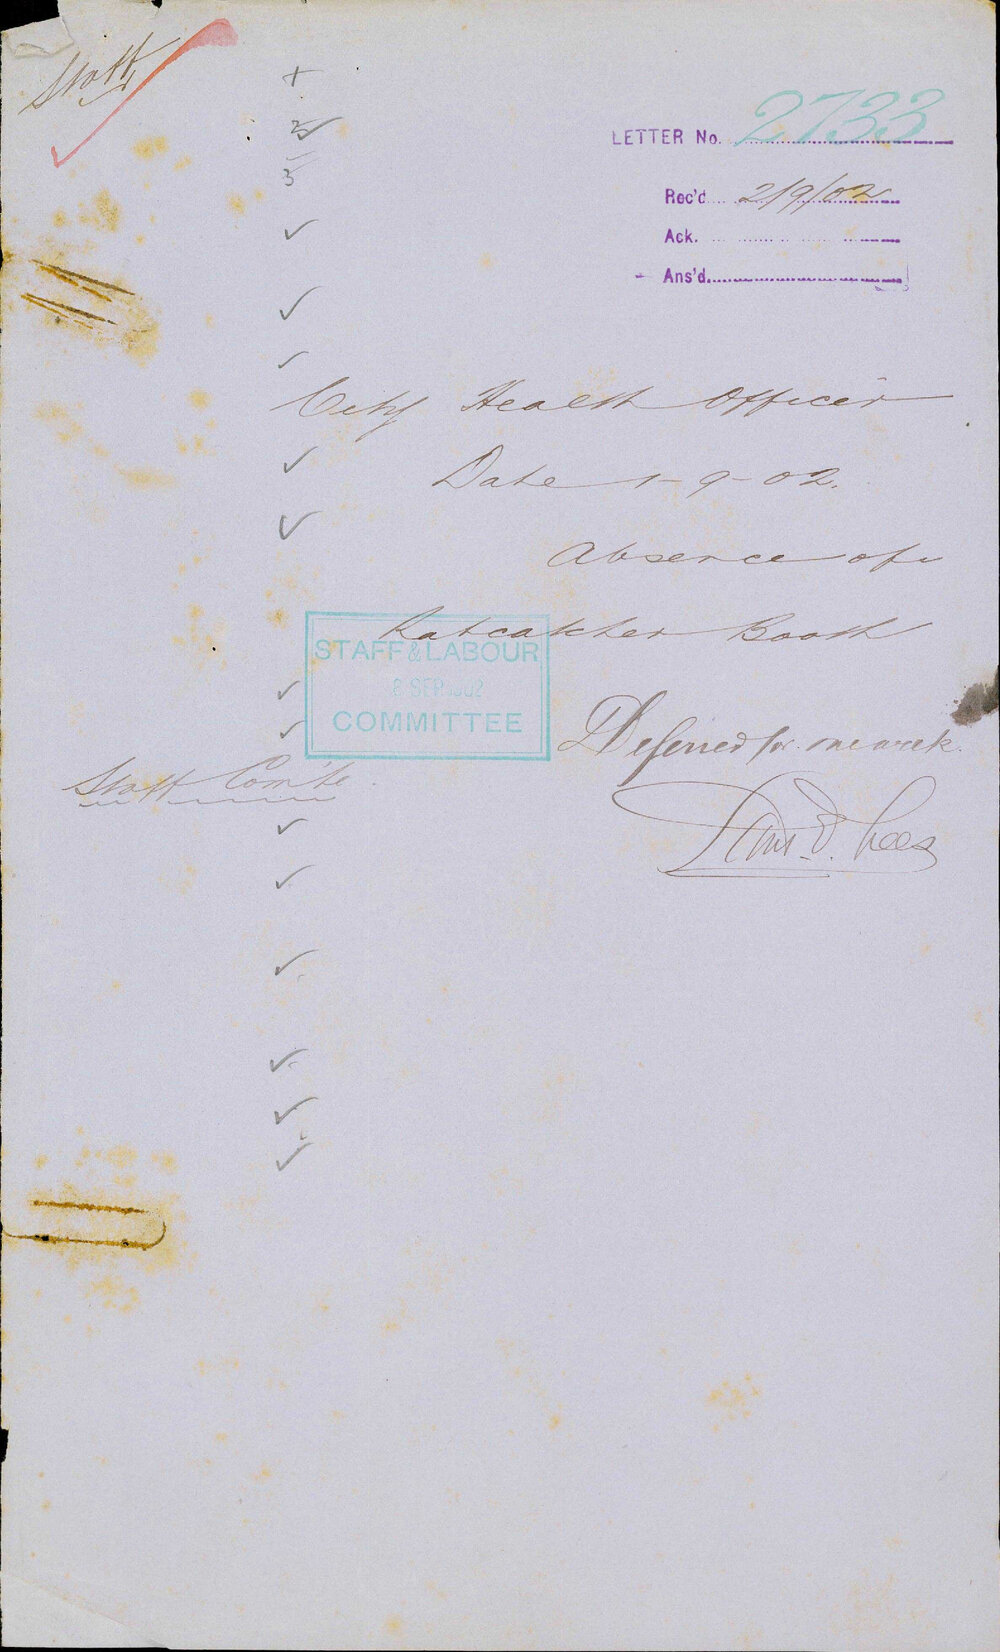 Staff
+
2
3
LETTER No. 2733
Rec'd 2/9/02
Ack.
Ans'd.
City Health Officer
Date 1-9-02.
Absence of
Ratcatcher Booth
STAFF & LABOUR
8 SEP 1902
COMMITTEE
Deferred for one week.
Staff Comte
Lees